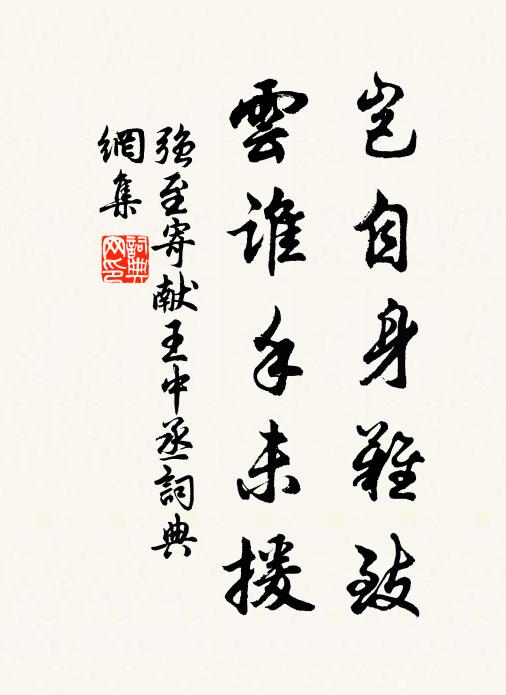 岂自身難致
雲誰手未援
強至寄献王中丞詞典
網集
詞典
网印